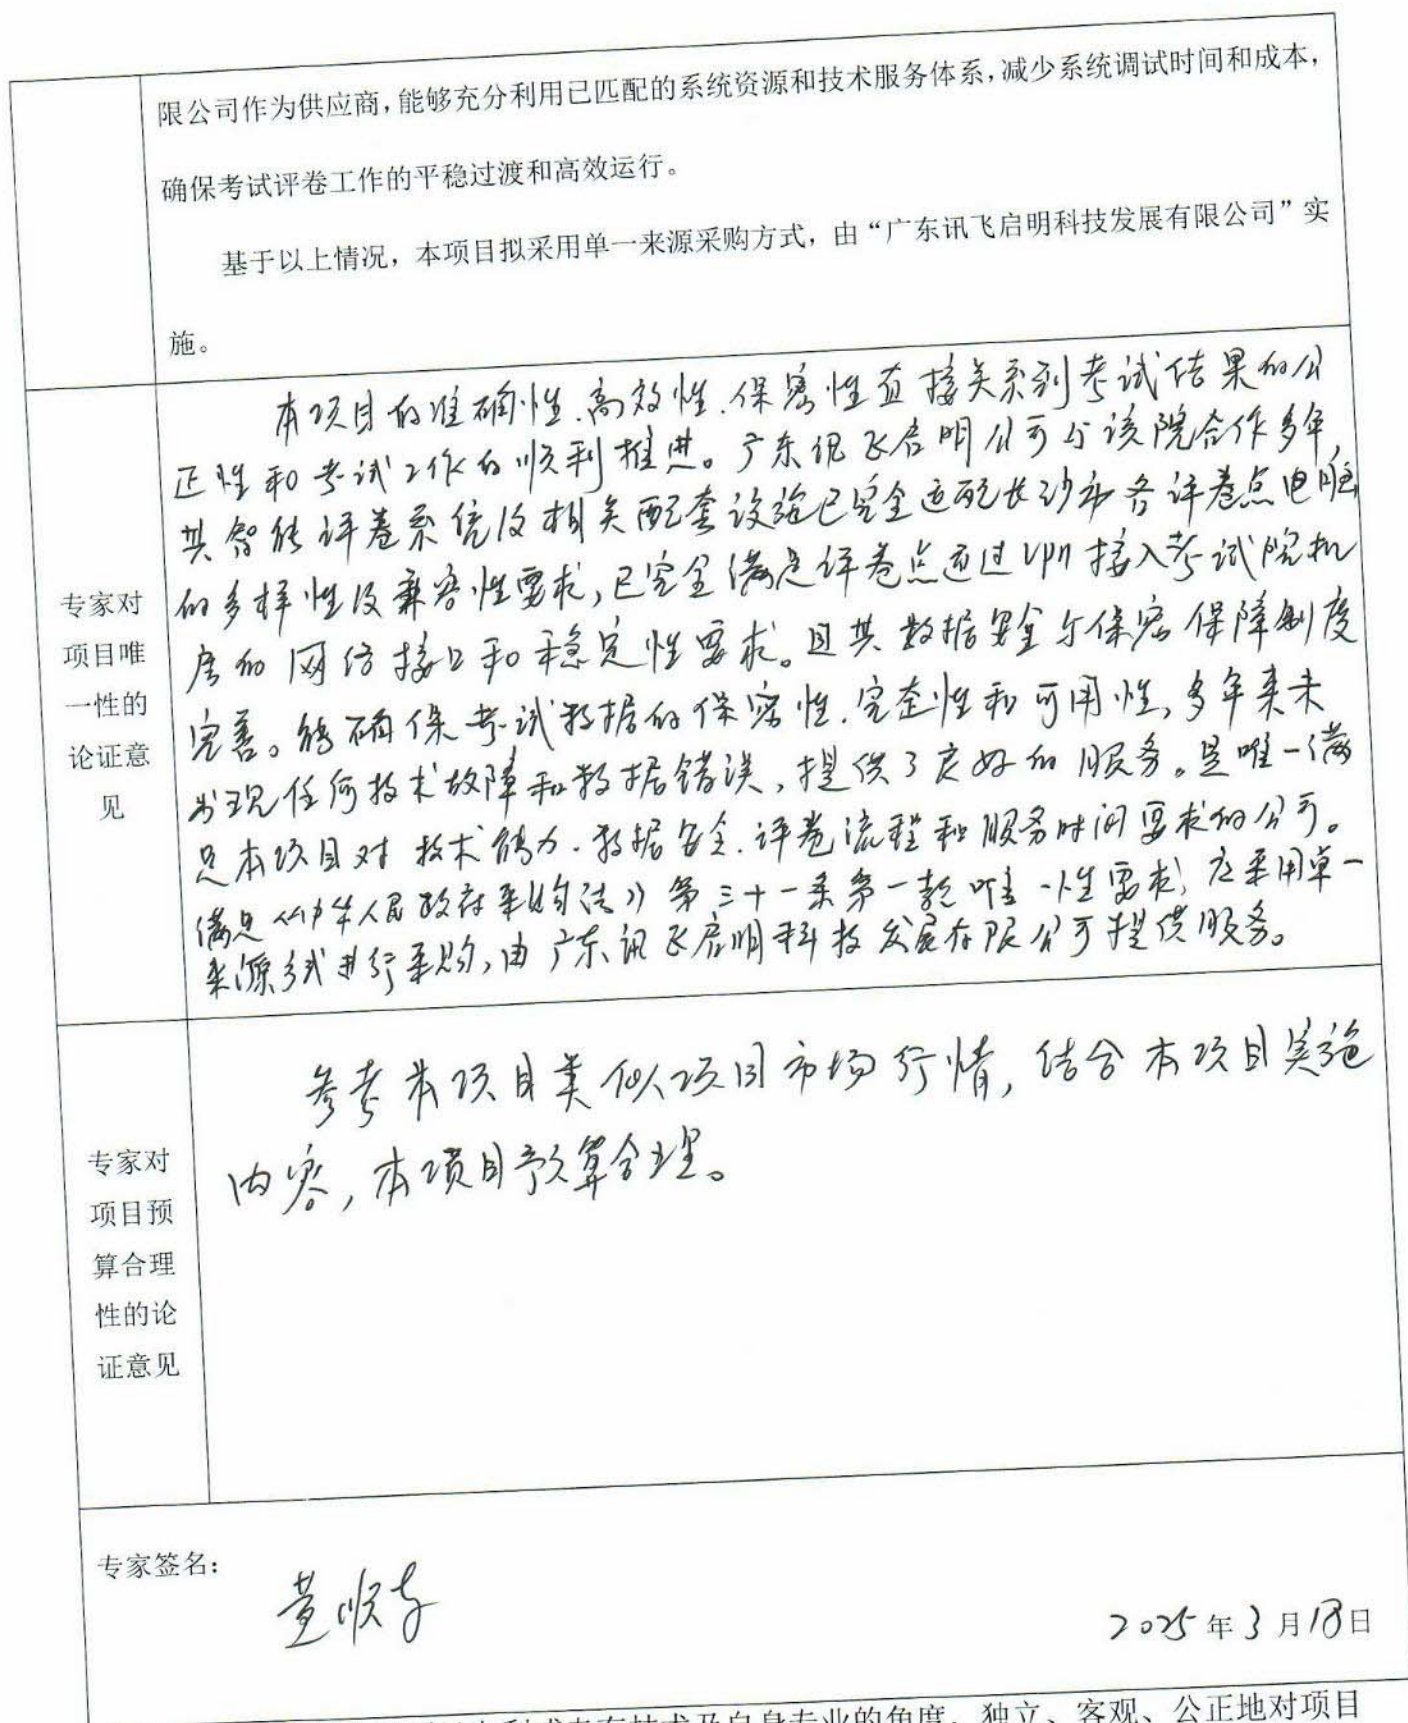 限公司作为供应商，能够充分利用已匹配的系统资源和技术服务体系，减少系统调试时间和成本，
确保考试评卷工作的平稳过渡和高效运行。
基于以上情况，本项目拟采用单一来源采购方式，由“广东讯飞启明科技发展有限公司”实
施。
专家对
项目唯
一性的
论证意
见
本项目的准确性、高效性、保密性直接关系到考试结果的公
正性和考试工作的顺利推进。广东讯飞启明公司与该院合作多年，
其智能评卷系统及相关配套设施已完全适配长沙市各评卷点电脑
的多样性及兼容性要求，已完全满足评卷点通过VPN接入考试院机
房的网络接口和稳定性要求。且其数据安全与保密保障制度
完善。能确保考试数据的保密性、完整性和可用性，多年来未
出现任何技术故障和数据错误，提供了良好的服务。是唯一满
足本项目对技术能力、数据安全、评卷流程和服务时间要求的公司。
满足《中华人民政府采购法》第三十一条第一款唯一性要求，应采用单一
来源方式进行采购，由广东讯飞启明科技发展有限公司提供服务。
专家对
项目预
算合理
性的论
证意见
参考本项目类似项目市场行情，结合本项目实施
内容，本项目预算合理。
专家签名：
黄顺
2025年3月18日
及自身专业的角度，独立、客观、公正地对项目